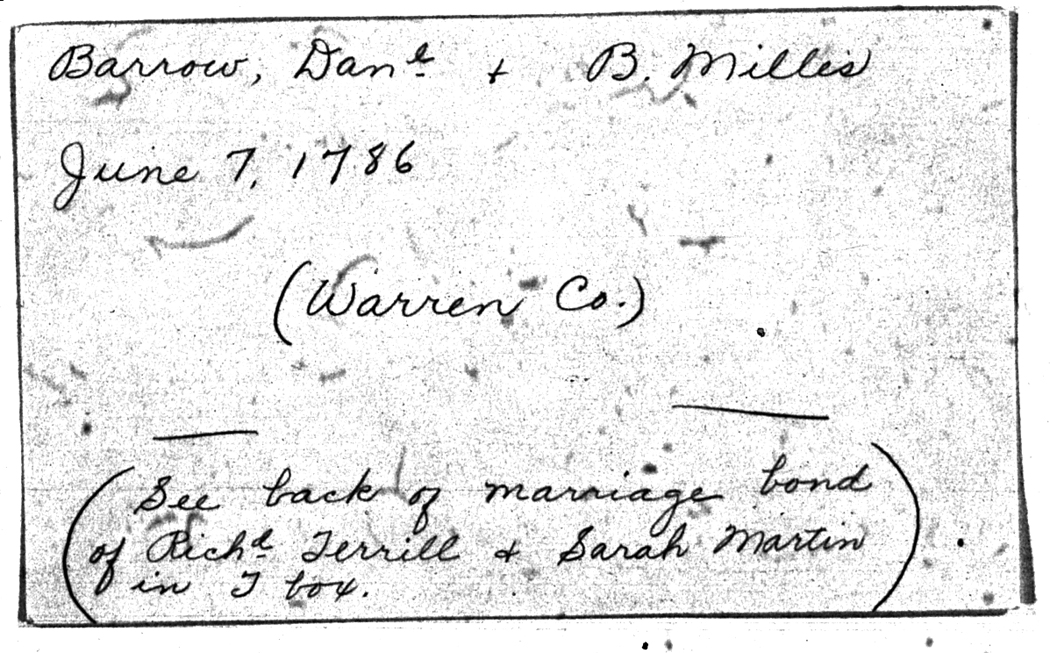 Barrow, Danl & B. Millis
June 7, 1786
(Warren Co.)
(See back of marriage bond
of Richd Terrill & Sarah Martin
in T box.)